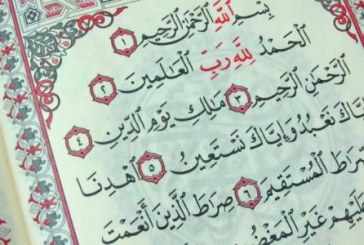 بِسْمِ ٱللَّهِ ٱلرَّحْمَٰنِ ٱلرَّحِيمِ ١
ٱلْحَمْدُ لِلَّهِ رَبِّ ٱلْعَٰلَمِينَ ٢
ٱلرَّحْمَٰنِ ٱلرَّحِيمِ ٣ مَٰلِكِ يَوْمِ ٱلدِّينِ ٤
نَعْبُدُ وَإِيَّاكَ نَسْتَعِينُ ٥ ٱهْدِنَا
ٱلْمُسْتَقِيمَ ٦ صِرَٰطَ ٱلَّذِينَ أَنْعَمْتَ
غَيْرِ